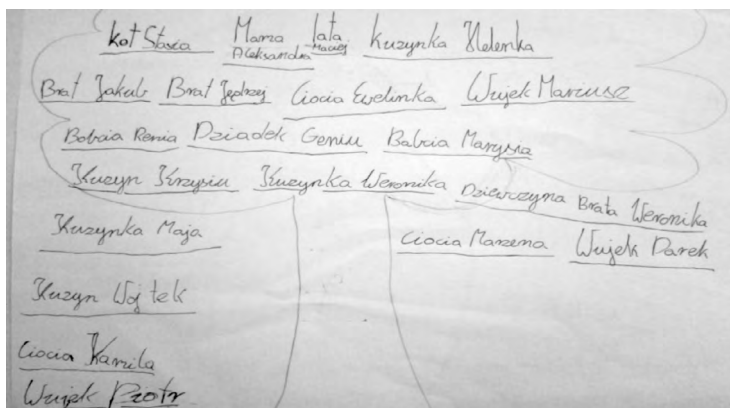 Kot Stasia Mama Aleksandra Tata Maciej Kuzynka Helenka
Brat Jakub Brat Jędrzej Ciocia Ewelinka Wujek Mariusz
Babcia Renia Dziadek Geniu Babcia Marysia
Kuzyn Krzysiu Kuzynka Weronika Dziewczyna Brata Weronika
Kuzynka Maja Ciocia Marzena Wujek Darek
Kuzyn Wojtek
Ciocia Kamila
Wujek Piotr